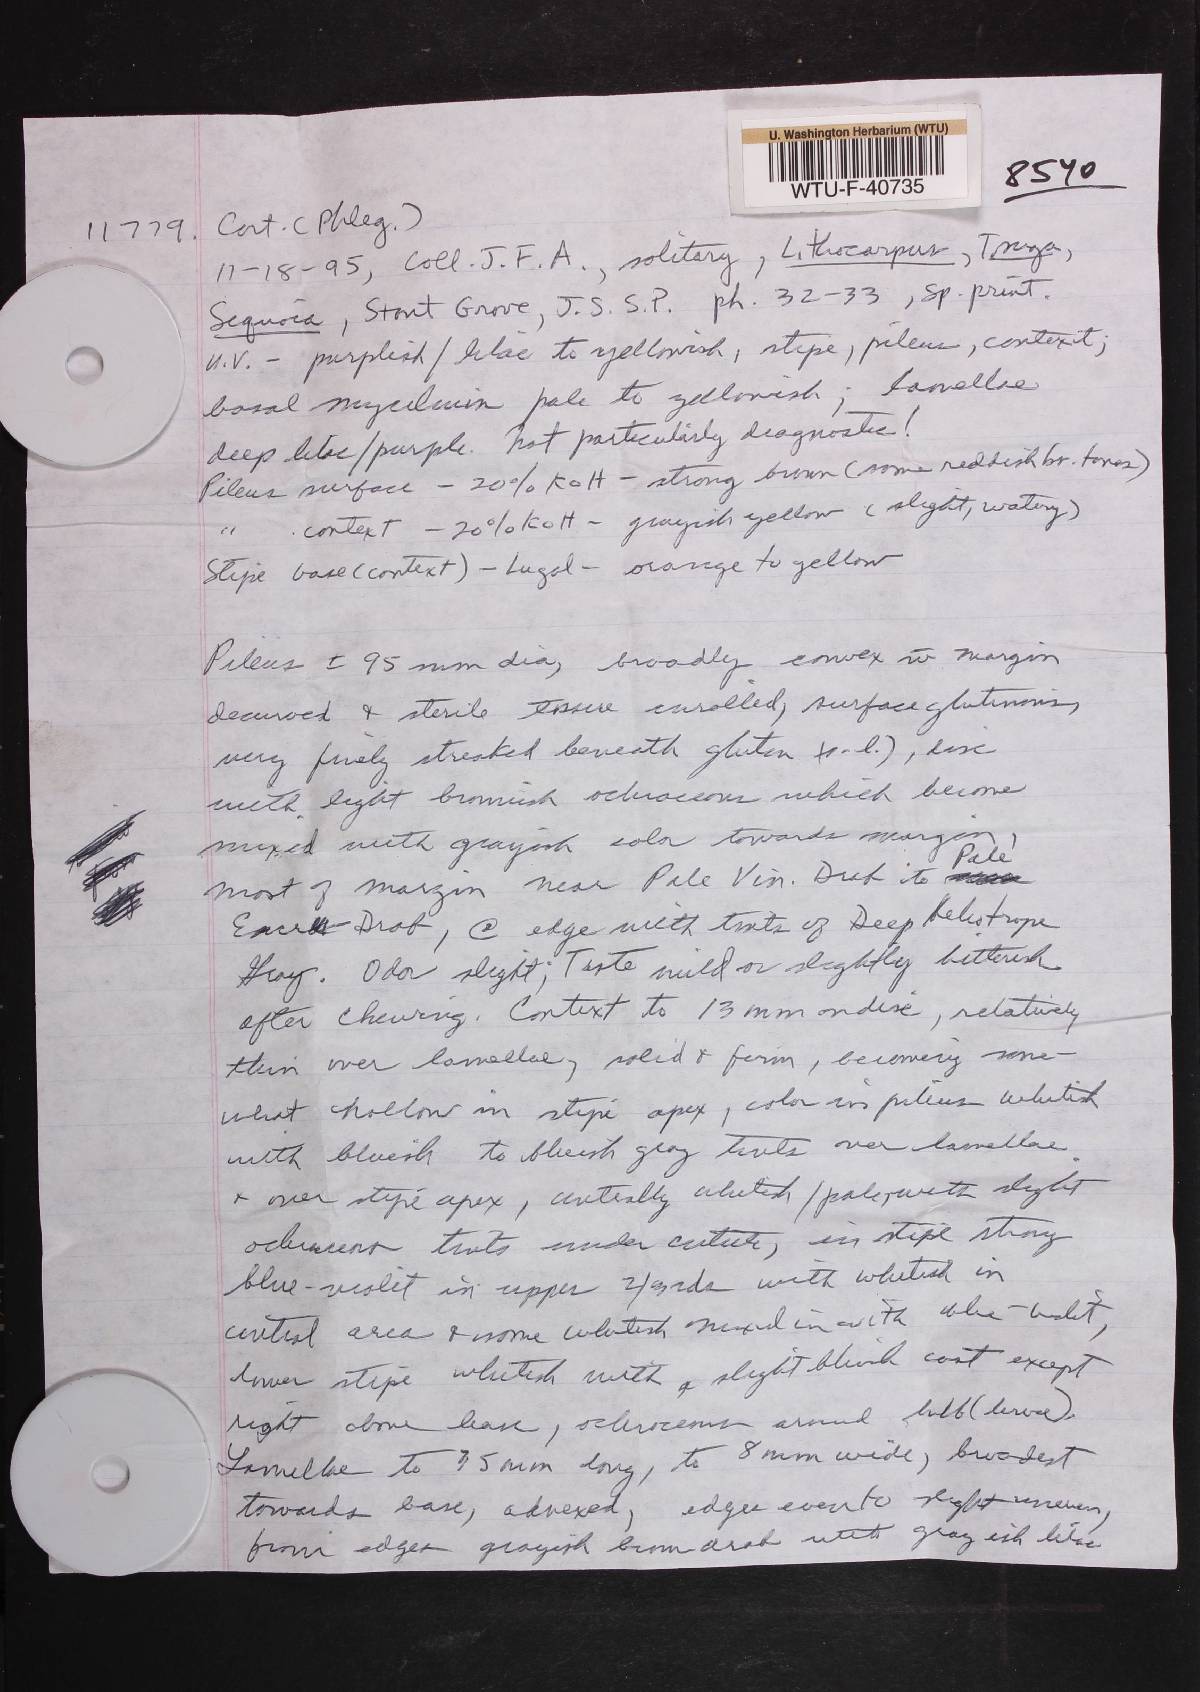 U. Washington Herbarium (WTU)
WTU-F-40735
8540
11779. Cort. (Phleg.)
11-18-95, Coll. J.F.A., solitary, Lithocarpus, Tsuga,
Sequoia, Stout Grove, J.S.S.P. ph. 32-33, sp. print.
U.V. - purplish/lilac to yellowish, stipe, pileus, context;
basal mycelium pale to yellowish; lamellae
deep lilac/purple. Not particularly diagnostic!
Pileus surface - 20% KOH - strong brown (some reddish br. tones)
" context - 20% KOH - grayish yellow (slight, watery)
Stipe base (context) - Lugol - orange to yellow
Pileus ± 95 mm dia, broadly convex w margin
decurved & sterile tissue enrolled, surface glutinous,
very finely streaked beneath gluten (s.l.), disc
with light brownish ochraceous which become
mixed with grayish color towards margin,
most of margin near Pale Vin. Drab to Pale
Ecru-Drab, @ edge with tints of Deep Heliotrope
Gray. Odor slight; Taste mild or slightly bitterish
after chewing. Context to 13 mm on disc, relatively
thin over lamellae, solid & firm, becoming some-
what hollow in stipe apex, color in pileus whitish
with bluish to bluish gray tints over lamellae
& over stipe apex, centrally whitish/pale, with slight
ochraceous tints under cuticle, in stipe strong
blue-violet in upper 2/3rds with whitish in
central area & some whitish mixed in with blue-violet,
lower stipe whitish with slight bluish cast except
right above base, ochraceous around bulb (larvae).
Lamellae to 35 mm long, to 8 mm wide, broadest
towards base, adnexed, edges even to slight uneven,
from edges grayish brown drab with grayish lilac